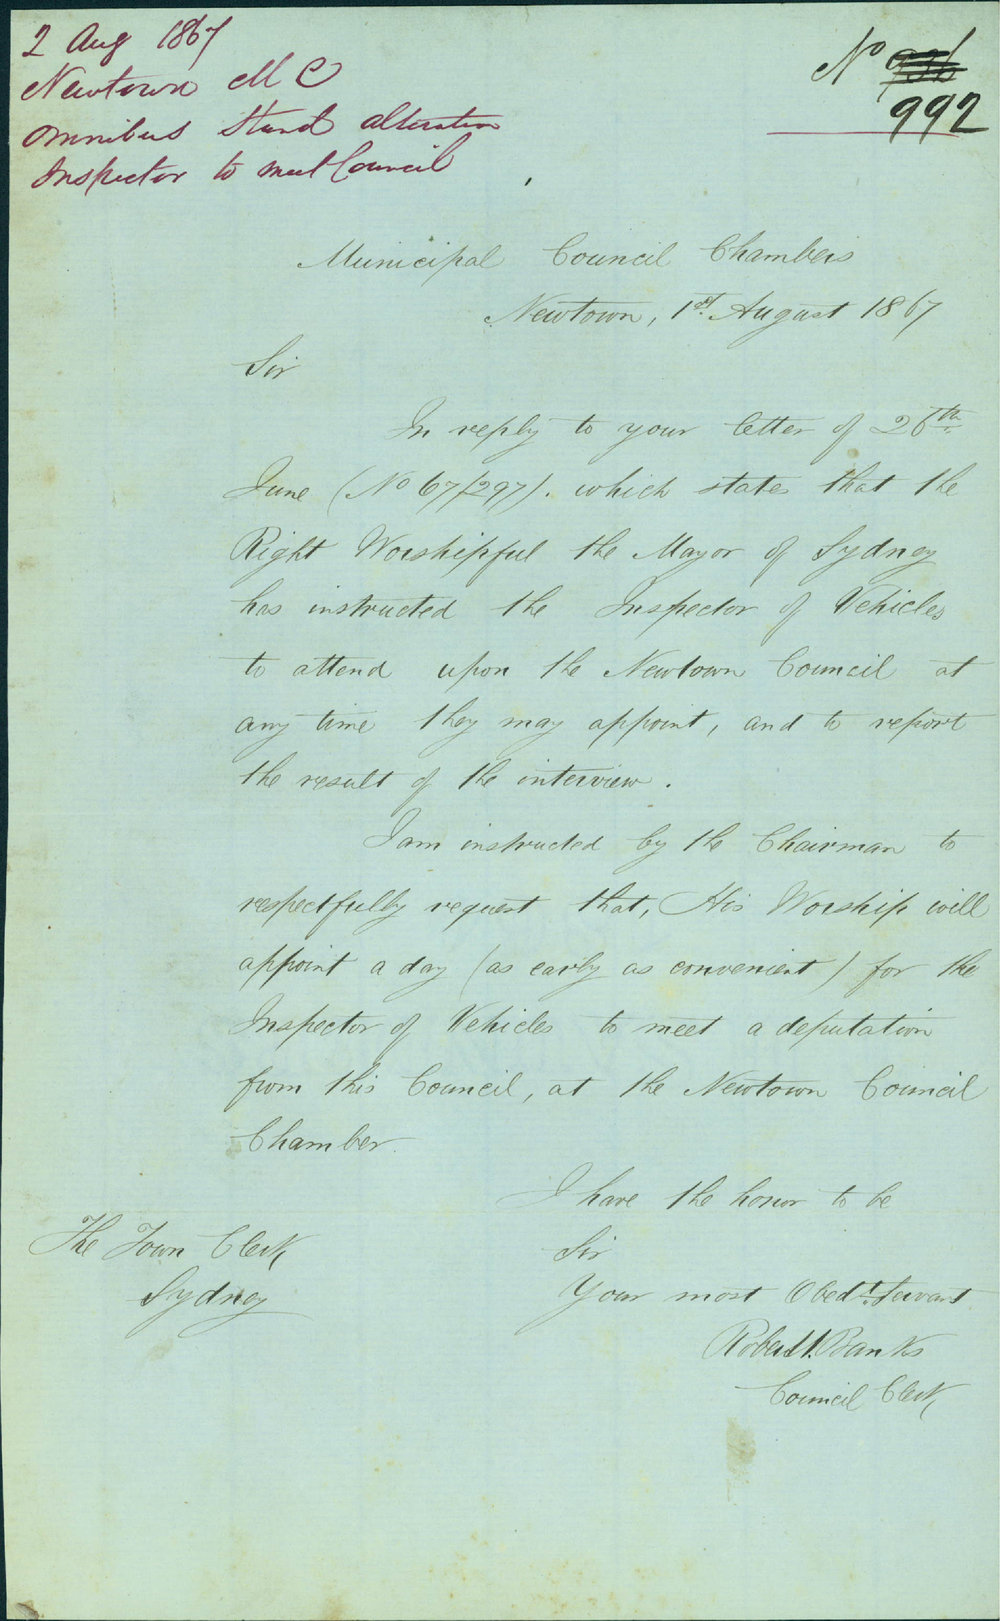 2 Aug 1867
Newtown M C
Omnibus Stand alteration
Inspector to meet Council
No
992
Municipal Council Chambers
Newtown, 1st August 1867
Sir
In reply to your letter of 26th
June (No 67/297). which states that the
Right Worshipful the Mayor of Sydney
has instructed the Inspector of Vehicles
to attend upon the Newtown Council at
any time they may appoint, and to report
the result of the interview.
I am instructed by the Chairman to
respectfully request that, His Worship will
appoint a day (as early as convenient) for the
Inspector of Vehicles to meet a deputation
from this Council, at the Newtown Council
Chamber.
I have the honor to be
Sir
Your most Obedt. Servant
Robert Banks
Council Clerk
The Town Clerk
Sydney